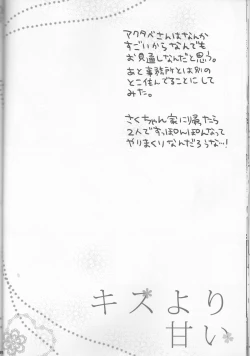 アクタベさんはなんか
すごいからなんでも
お見通しなんだと思う。
あと事務所とは別の
とこ住んでることにして
みた。
さくちゃん家に帰ったら
2人ですっぽんぽんなって
やりまくりなんだろうな…!
キスより
甘い